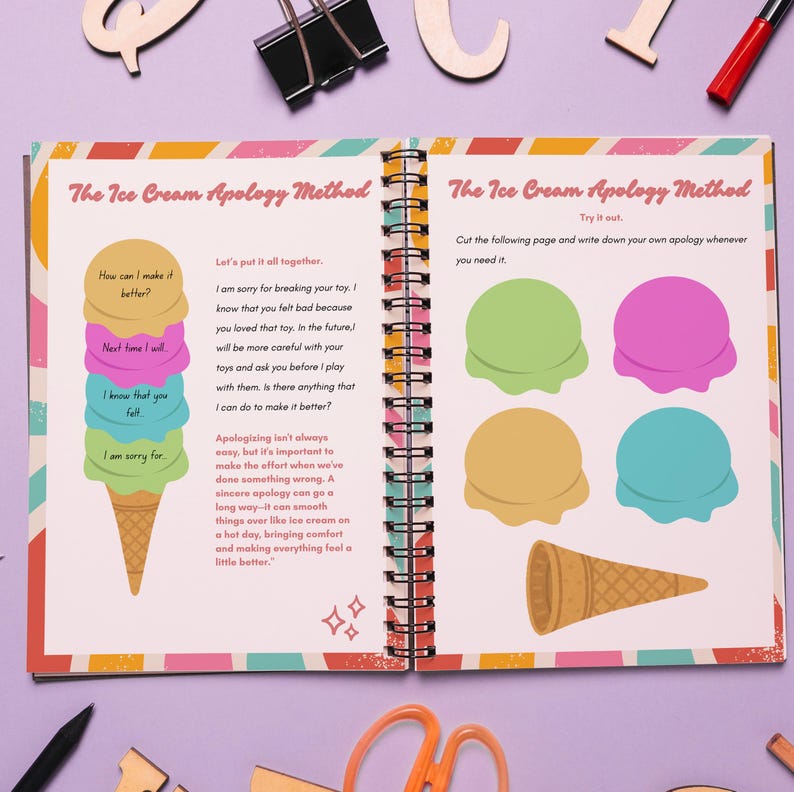 The Ice Cream Apology Method
How can I make it
better?
Next time I will..
I know that you
felt..
I am sorry for...
Let's put it all together.
I am sorry for breaking your toy. I
know that you felt bad because
you loved that toy. In the future,I
will be more careful with your
toys and ask you before I play
with them. Is there anything that
I can do to make it better?
Apologizing isn't always
easy, but it's important to
make the effort when we've
done something wrong. A
sincere apology can go a
long way—it can smooth
things over like ice cream on
a hot day, bringing comfort
and making everything feel a
little better."
The Ice Cream Apology Method
Try it out.
Cut the following page and write down your own apology whenever
you need it.